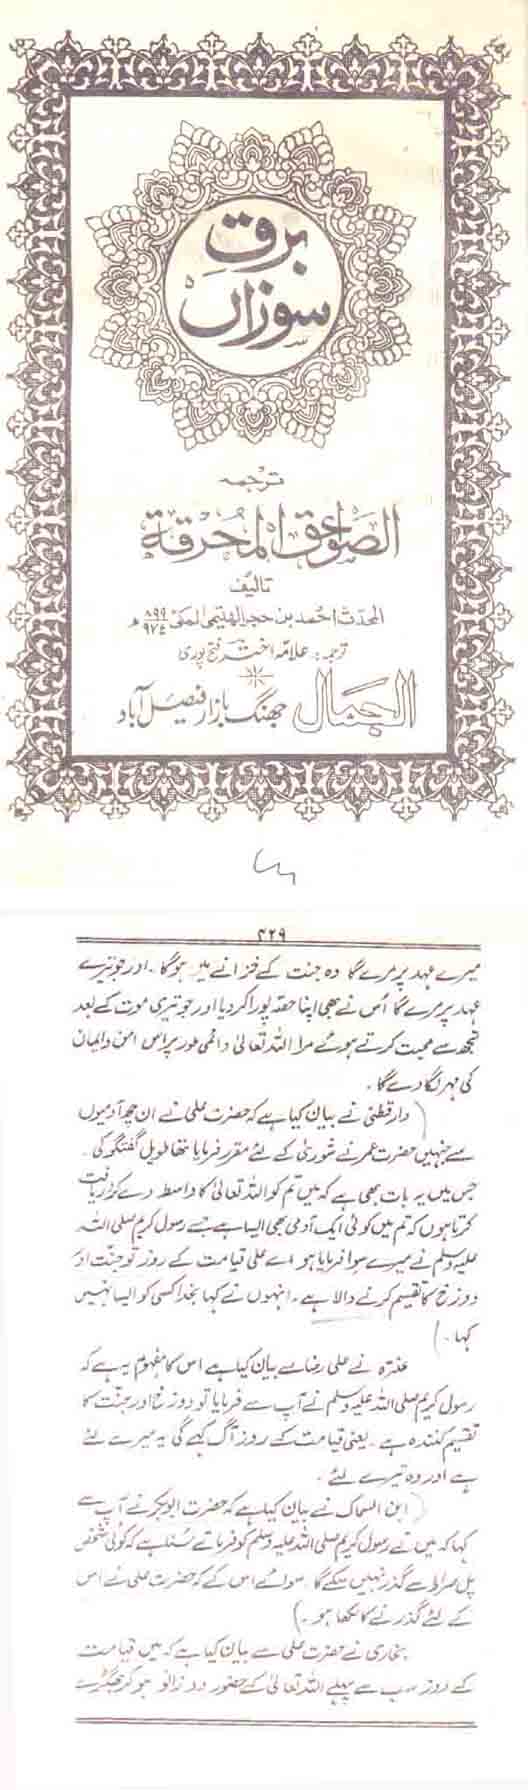 برق
سوزاں
ترجمہ
الصواعق المحرقة
تالیف
المحدث احمد بن حجر الهیتمی المکی ۸۹۹ ۹۷۴ھ
ترجمہ: علامہ اختر فتح پوری
الجمال جھنگ بازار فیصل آباد
۴۲۹
میرے عہد پر مرے گا وہ جنت کے خزانے میں ہوگا۔ اور جو تیرے
عہد پر مرے گا اُس نے بھی اپنا حصہ پورا کر دیا اور جو تیری موت کے بعد
تجھ سے محبت کرتے ہوئے مرا اللہ تعالیٰ دائمی طور پر اس امن و ایمان
کی مہر لگا دے گا۔
(دار قطنی نے بیان کیا ہے کہ حضرت علی نے ان چھ آدمیوں
سے جنہیں حضرت عمر نے شوریٰ کے لئے مقرر فرمایا تھا طویل گفتگو کی۔
جس میں یہ بات بھی ہے کہ میں تم کو اللہ تعالیٰ کا واسطہ دے کر دریافت
کرتا ہوں کہ تم میں کوئی ایک آدمی بھی ایسا ہے جسے رسول کریم صلی اللہ
علیہ وسلم نے میرے سوا فرمایا ہو اے علی قیامت کے روز تو جنت اور
دوزخ کا تقسیم کرنے والا ہے۔ انہوں نے کہا بخدا کسی کو ایسا نہیں
کہا۔)
عنترہ نے علی رضا سے بیان کیا ہے اس کا مفہوم یہ ہے کہ
رسول کریم صلی اللہ علیہ وسلم نے آپ سے فرمایا تو دوزخ اور جنت کا
تقسیم کنندہ ہے۔ یعنی قیامت کے روز آگ کہے گی یہ میرے لئے
ہے اور وہ تیرے لئے۔
(ابن السماک نے بیان کیا ہے کہ حضرت ابوبکر نے آپ سے
کہا کہ میں نے رسول کریم صلی اللہ علیہ وسلم کو فرماتے سُنا ہے کہ کوئی شخص
پل صراط سے گذر نہیں سکے گا۔ سوائے اس کے کہ حضرت علی نے اس
کے لئے گذرنے کا لکھا ہو۔)
بخاری نے حضرت علی سے بیان کیا ہے کہ میں قیامت
کے روز سب سے پہلے اللہ تعالیٰ کے حضور دو زانو ہو کر جھگڑے